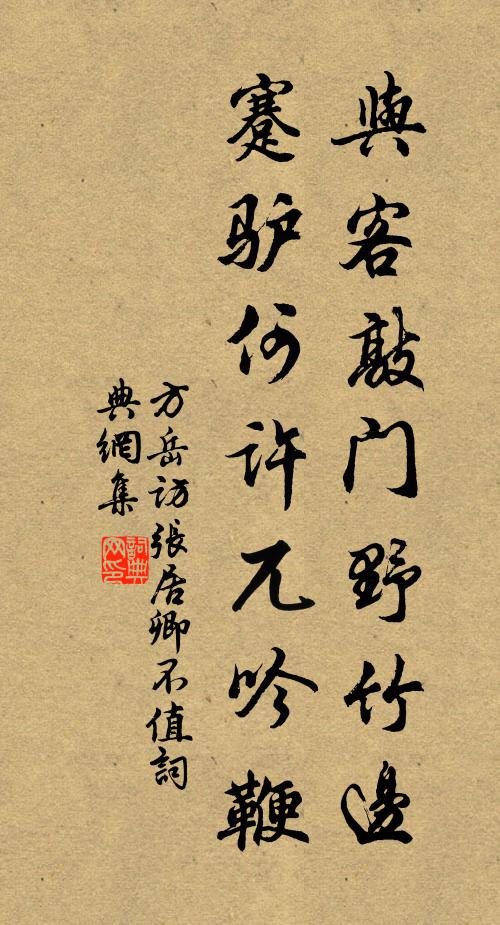 與客敲门野竹邊
蹇驴何许兀吟鞭
方岳访張居卿不值詞
典網集
詞典
网印